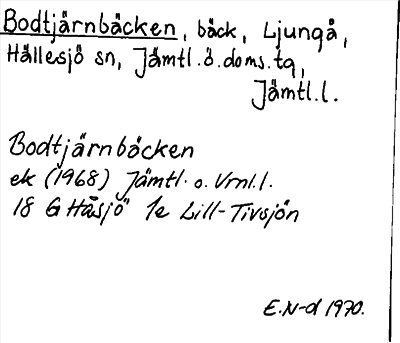 Bodtjärnbäcken, bäck, Ljungå,
Hällesjö sn, Jämtl.ö.doms.tg,
Jämtl.l.
Bodtjärnbäcken
ek (1968) Jämtl. o. Vrnl.l.
18 G Håsjö 1e Lill-Tivsjön
E.N-d 1970.